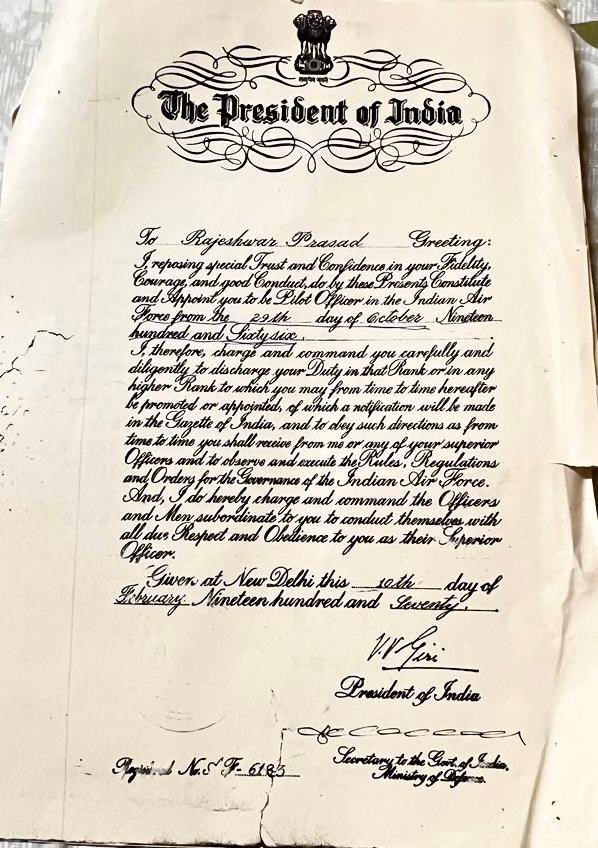 सत्यमेव जयते
The President of India
To Rajeshwar Prasad Greeting:
I, reposing special Trust and Confidence in your Fidelity,
Courage, and good Conduct, do by these Presents Constitute
and Appoint you to be Pilot Officer in the Indian Air
Force from the 29th day of October Nineteen
hundred and Sixtysix.
I, therefore, charge and command you carefully and
diligently to discharge your Duty in that Rank or in any
higher Rank to which you may from time to time hereafter
be promoted or appointed, of which a notification will be made
in the Gazette of India, and to obey such directions as from
time to time you shall receive from me or any of your superior
Officers and to observe and execute the Rules, Regulations
and Orders for the Governance of the Indian Air Force.
And, I do hereby charge and command the Officers
and Men subordinate to you to conduct themselves with
all due Respect and Obedience to you as their Superior
Officer.
Given at New Delhi this 10th day of
February Nineteen hundred and Seventy.
V.V Giri
President of India
Secretary to the Govt. of India,
Ministry of Defence.
Registered No. F 6183